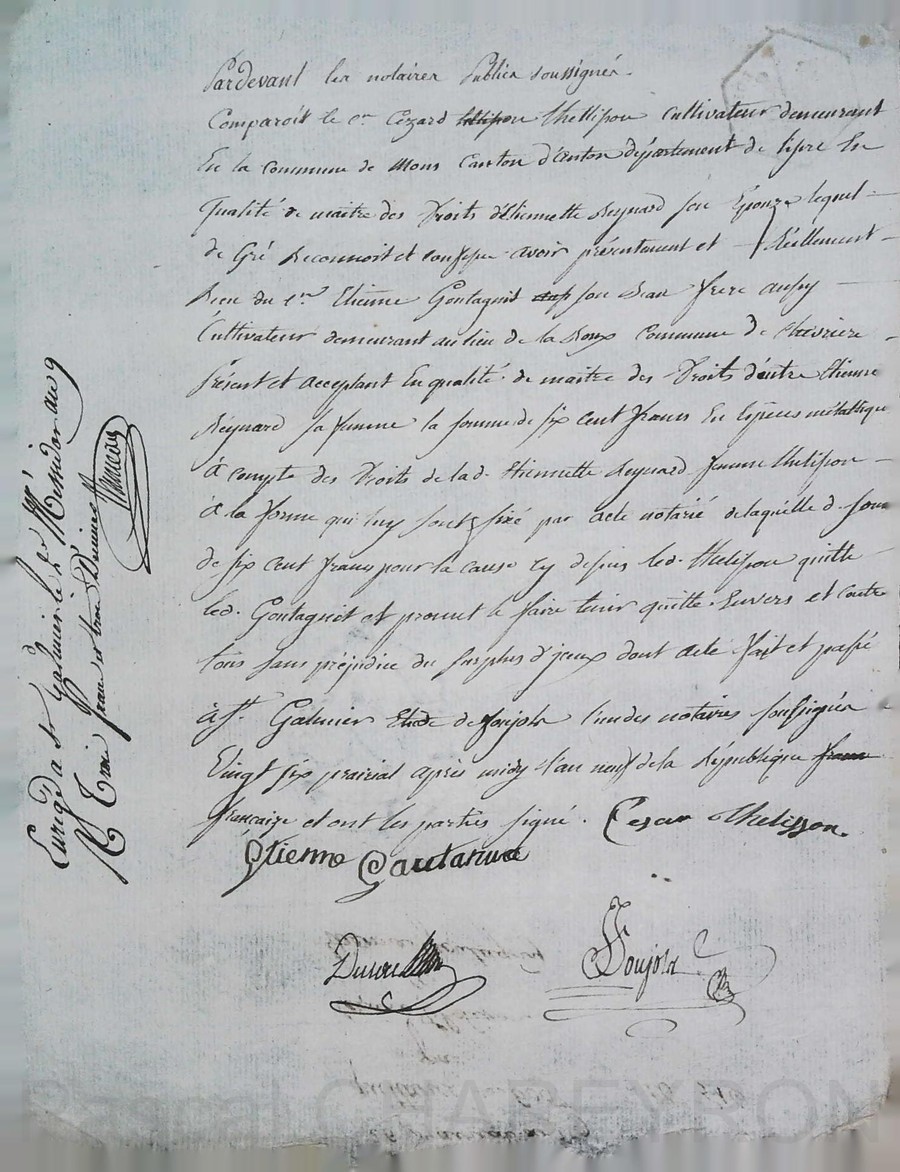 Pardevant les notaires Publics soussignés.
Comparoit le cen Cezard Thellison Cultivateur demeurant
En la commune de Mons Canton d'anton département de lisère En
qualité de maitre des Droits d'Etiennette Reynard son Epouze lequel
de Gré Reconnoit et confesse avoir présentement et Réellement
Receu du cen Etienne Goutagnit son beau frere aussy
Cultivateur demeurant au lieu de la Commune de Chevriere
Présent et acceptant En qualité de maitre des Droits d'autre Etienne
Reynard sa femme la somme de six cent francs En Especes métallique
à compte des Droits de lad. Etiennette Reynard femme Thelison
à la forme qui luy sont fixé par acte notarié de laquelle d. somme
de six cent francs pour la cause cy dessus led. Thelison quitte
led. Goutagnit et promet le faire tenir quitte Envers et contre
tous sans préjudice du surplus d'yceux dont acte fait et passé
à St. Galmier Etude de Soujols l'un des notaires soussignés
Vingt six prairial après midy l'an neuf de la République
française et ont les parties signé. Cesar Thelisson.
Étienne
Soujols
Enregé a St Galmier le 2 Messidor an 9
R Trois francs et trois Décimes
Pascal CHABEYRON